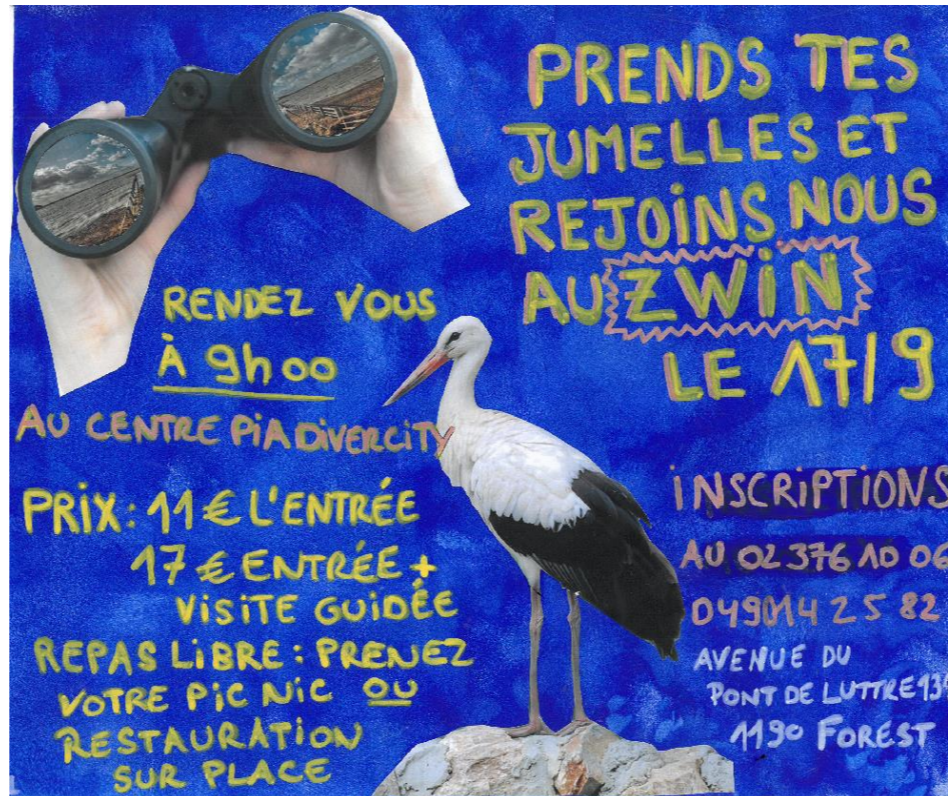 PRENDS TES
JUMELLES ET
REJOINS NOUS
AU ZWIN
LE 17/9
RENDEZ VOUS
À 9h00
AU CENTRE PIADIVERCITY
PRIX: 11 € L'ENTRÉE
17 € ENTRÉE +
VISITE GUIDÉE
REPAS LIBRE: PRENEZ
VOTRE PIC NIC OU
RESTAURATION
SUR PLACE
INSCRIPTIONS
AU 02 376 10 06
049014 25 82
AVENUE DU
PONT DE LUTTRE
1190 FOREST